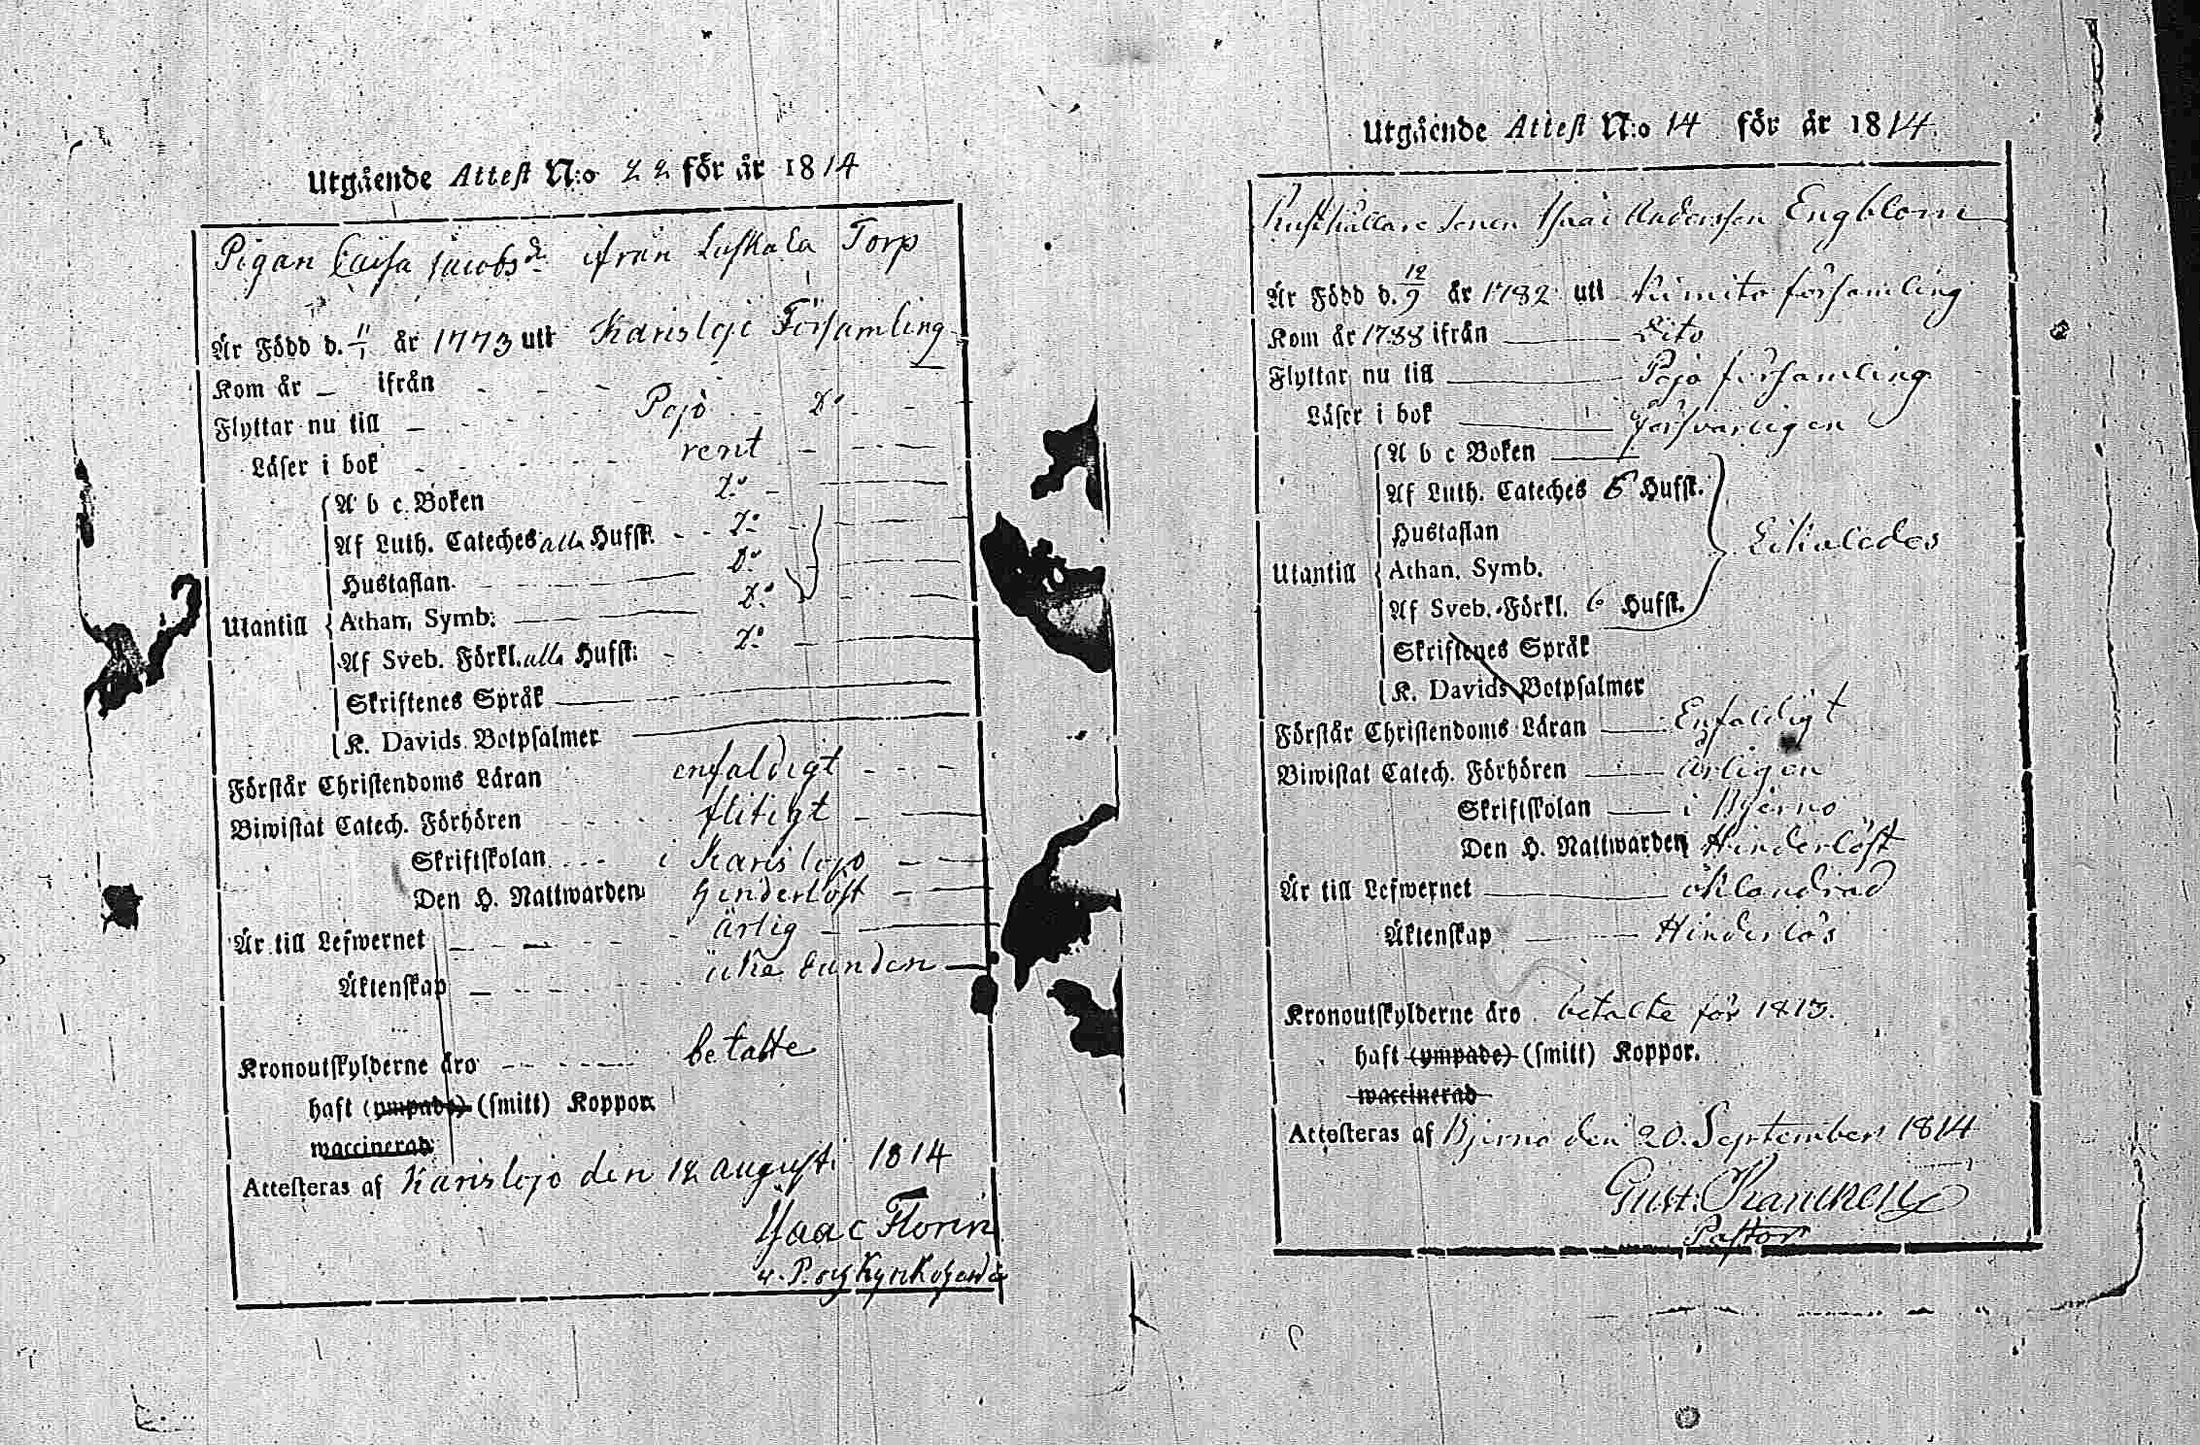 Utgående Attest N:o 22 för år 1814
Pigan Caisa Jacobsdr ifrån Luskala Torp
Är Född d. 11/1 år 1773 uti Karislojo Församling
Kom år — ifrån
Flyttar nu till Pojo Do
Läser i bok rent
A b c Boken Do
Af Luth. Cateches alla Hufst. Do
Hustaflan Do
Utantill Athan. Symb: Do
Af Sveb. Förkl. alla Hufst: Do
Skriftenes Språk
K. Davids Botpsalmer
Förstår Christendoms Läran enfaldigt
Biwistat Catech. Förhören flitigt
Skriftskolan i Karislojo
Den H. Nattwarden hinderlöst
Är till Lefwernet ärlig
Äktenskap icke bunden
Kronoutskylderne äro betalte
haft (ympade) (smitt) Koppor.
waccinerad
Attesteras af Karislojo den 12 augusti 1814
Isaac Florin
v. P. och Kyrkoherde
Utgående Attest N:o 14 för år 1814
Rusthållare Sonen Isaac Andersson Engblom
Är Född d. 12/9 år 1782 uti Kimito församling
Kom år 1788 ifrån Dito
Flyttar nu till Pojo församling
Läser i bok Försvarligen
A b c Boken
Af Luth. Cateches 6 Hufst.
Hustaflan Likaledes
Utantill Athan. Symb.
Af Sveb. Förkl. 6 Hufst.
Skriftenes Språk
K. Davids Botpsalmer
Förstår Christendoms Läran Enfaldigt
Biwistat Catech. Förhören Årligen
Skriftskolan i Bjerno
Den H. Nattwarden Hinderlöst
Är till Lefwernet oklandrad
Äktenskap Hinderlös
Kronoutskylderne äro betalte för 1813.
haft (ympade) (smitt) Koppor.
waccinerad
Attesteras af Bjerno den 20. September 1814
Gust:
Pastor